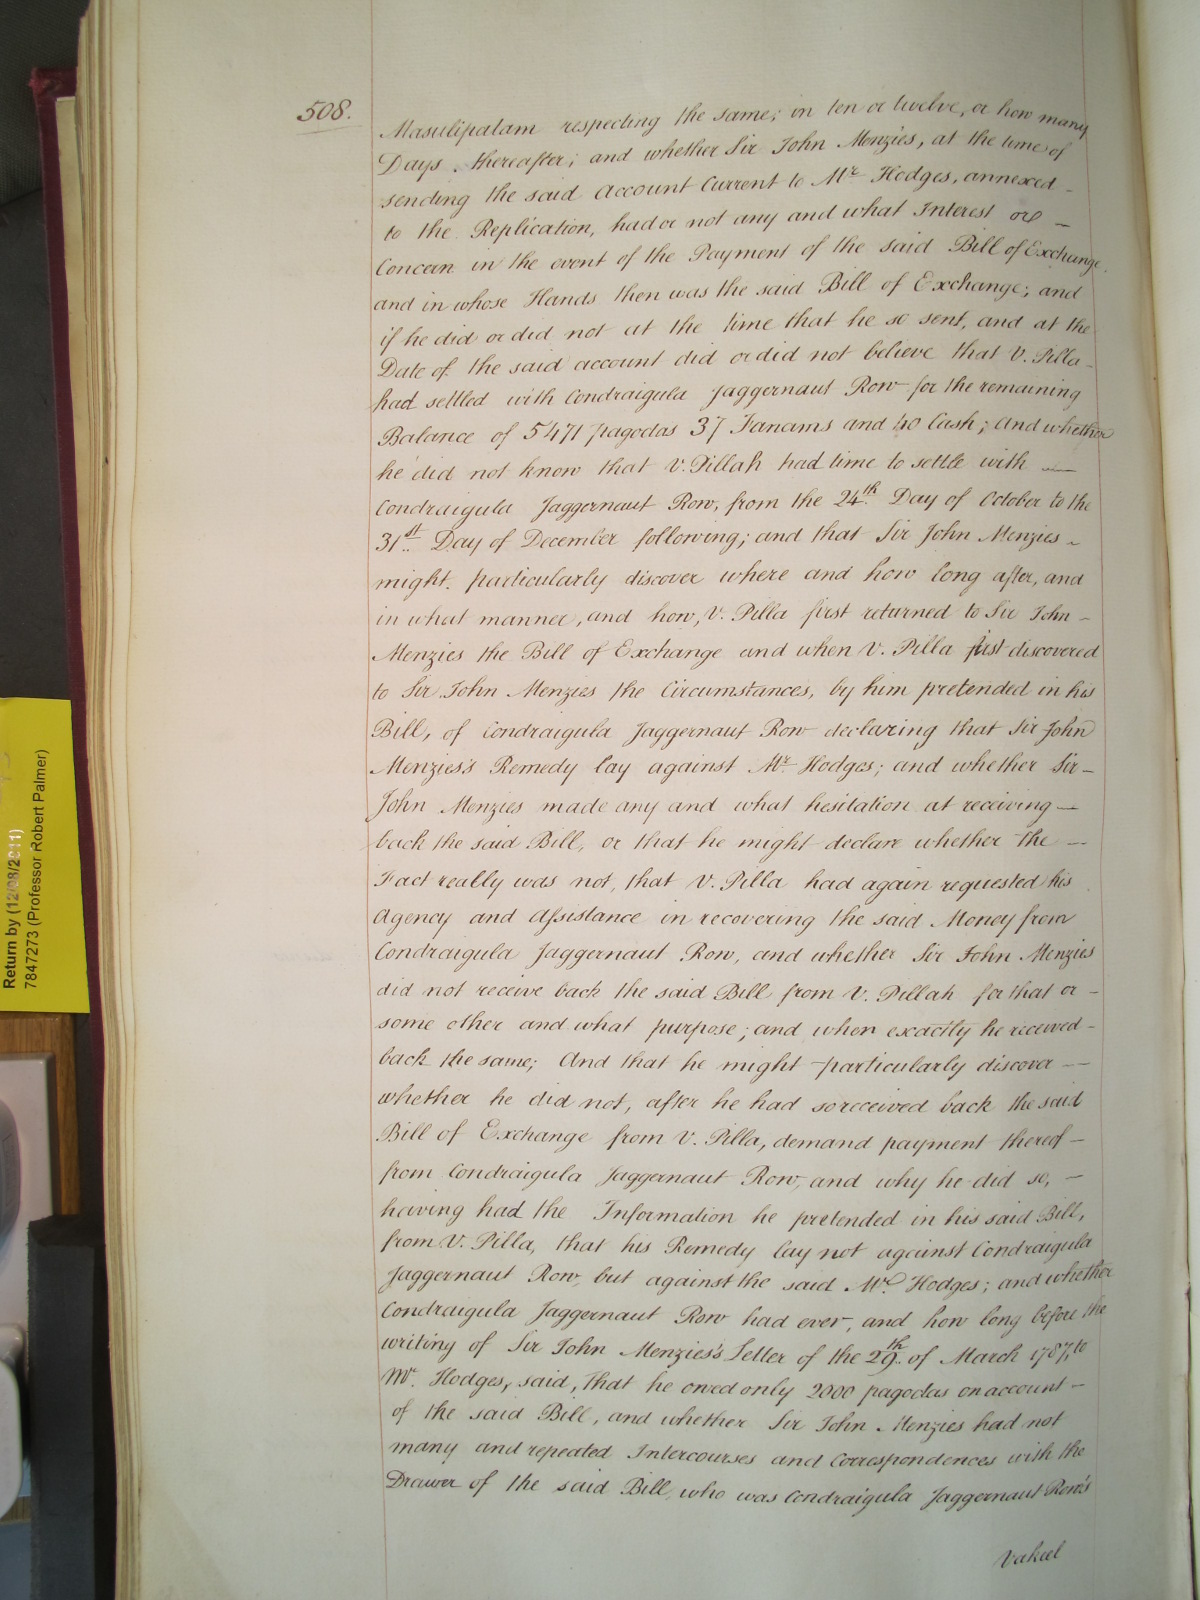 508.
Masulipatam respecting the same; in ten or twelve, or how many
Days thereafter; and whether Sir John Menzies, at the time of
sending the said Account Current to Mr. Hodges, annexed -
to the Replication, had or not any and what Interest or -
Concern in the event of the Payment of the said Bill of Exchange
and in whose Hands then was the said Bill of Exchange; and
if he did or did not at the time that he so sent, and at the
Date of the said account did or did not believe that V. Pilla -
had settled with Condraigula Jaggernaut Row for the remaining
Balance of 5471 pagodas 37 Fanams and 40 Cash; and whether
he did not know that V. Pillah had time to settle with -
Condraigula Jaggernaut Row, from the 24th. Day of October to the
31st. Day of December following; and that Sir John Menzies -
might. particularly discover where and how long after, and
in what manner, and how, V. Pilla first returned to Sir John -
Menzies the Bill of Exchange and when V. Pilla first discovered
to Sir John Menzies the Circumstances, by him pretended in his
Bill, of Condraigula Jaggernaut Row declaring that Sir John
Menzies's Remedy lay against Mr. Hodges; and whether Sir -
John Menzies made any and what hesitation at receiving -
back the said Bill, or that he might declare whether the -
Fact really was not, that V. Pilla had again requested his
Agency and Assistance in recovering the said Money from
Condraigula Jaggernaut Row, and whether Sir John Menzies
did not receive back the said Bill from V. Pillah for that or -
some other and what purpose; and when exactly he received -
back the same; And that he might particularly discover -
whether he did not, after he had so received back the said
Bill of Exchange from V. Pilla, demand payment thereof -
from Condraigula Jaggernaut Row, and why he did so, -
having had the Information he pretended in his said Bill,
from V. Pilla, that his Remedy lay not against Condraigula
Jaggernaut Row, but against the said Mr. Hodges; and whether
Condraigula Jaggernaut Row had ever, and how long before the
writing of Sir John Menzies's Letter of the 29th. of March 1787, to
Mr. Hodges, said, that he owed only 2000 pagodas on account -
of the said Bill, and whether Sir John Menzies had not
many and repeated Intercourses and Correspondences with the
Drawer of the said Bill, who was Condraigula Jaggernaut Row's
Vakeel
Return by (12/08/2011)
7847273 (Professor Robert Palmer)